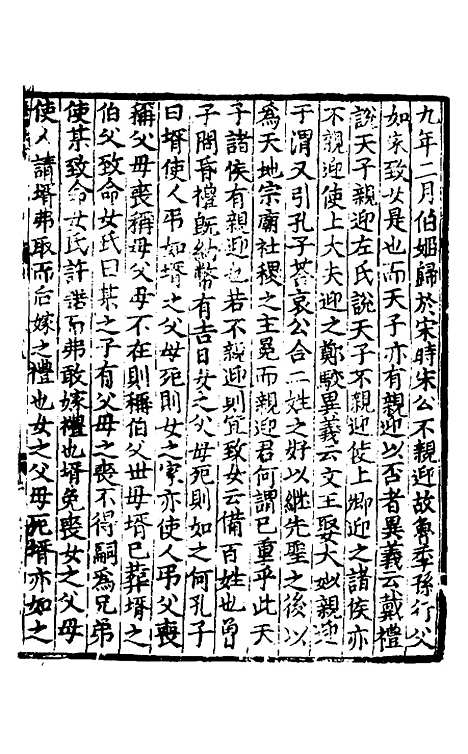 九年二月伯姬歸於宋時宋公不親迎故魯季孫行父
如宋致女是也而天子亦有親迎以否者異義云戴禮
說天子親迎左氏說天子不親迎使上卿迎之諸侯亦
不親迎使上大夫迎之鄭駮異義云文王娶大姒親迎
于渭又引孔子荅哀公合二姓之好以継先聖之後以
為天地宗廟社稷之主冕而親迎君何謂已重乎此天
子諸侯有親迎也若不親迎則宜致女云備百姓也曾
子問昏禮旣納幣有吉日女之父母死則如之何孔子
曰壻使人弔如壻之父母死則女之家亦使人弔父喪
稱父母喪稱母父母不在則稱伯父丗母壻已葬壻之
伯父致命女氏曰某之子有父母之喪不得嗣為兄弟
使某致命女氏許諾而弗敢嫁禮也壻免喪女之父母
使人請壻弗取而后嫁之禮也女之父母死壻亦如之